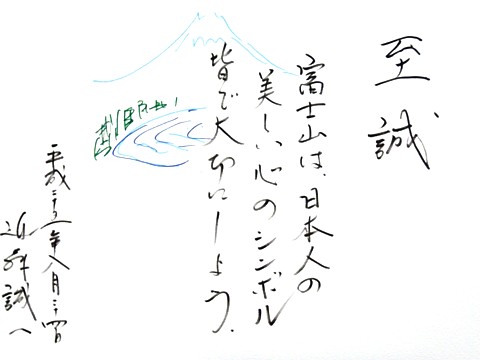 至誠
富士山は、日本人の
美しい心のシンボル
皆で大切にしよう。
平成二十五年八月二十四日